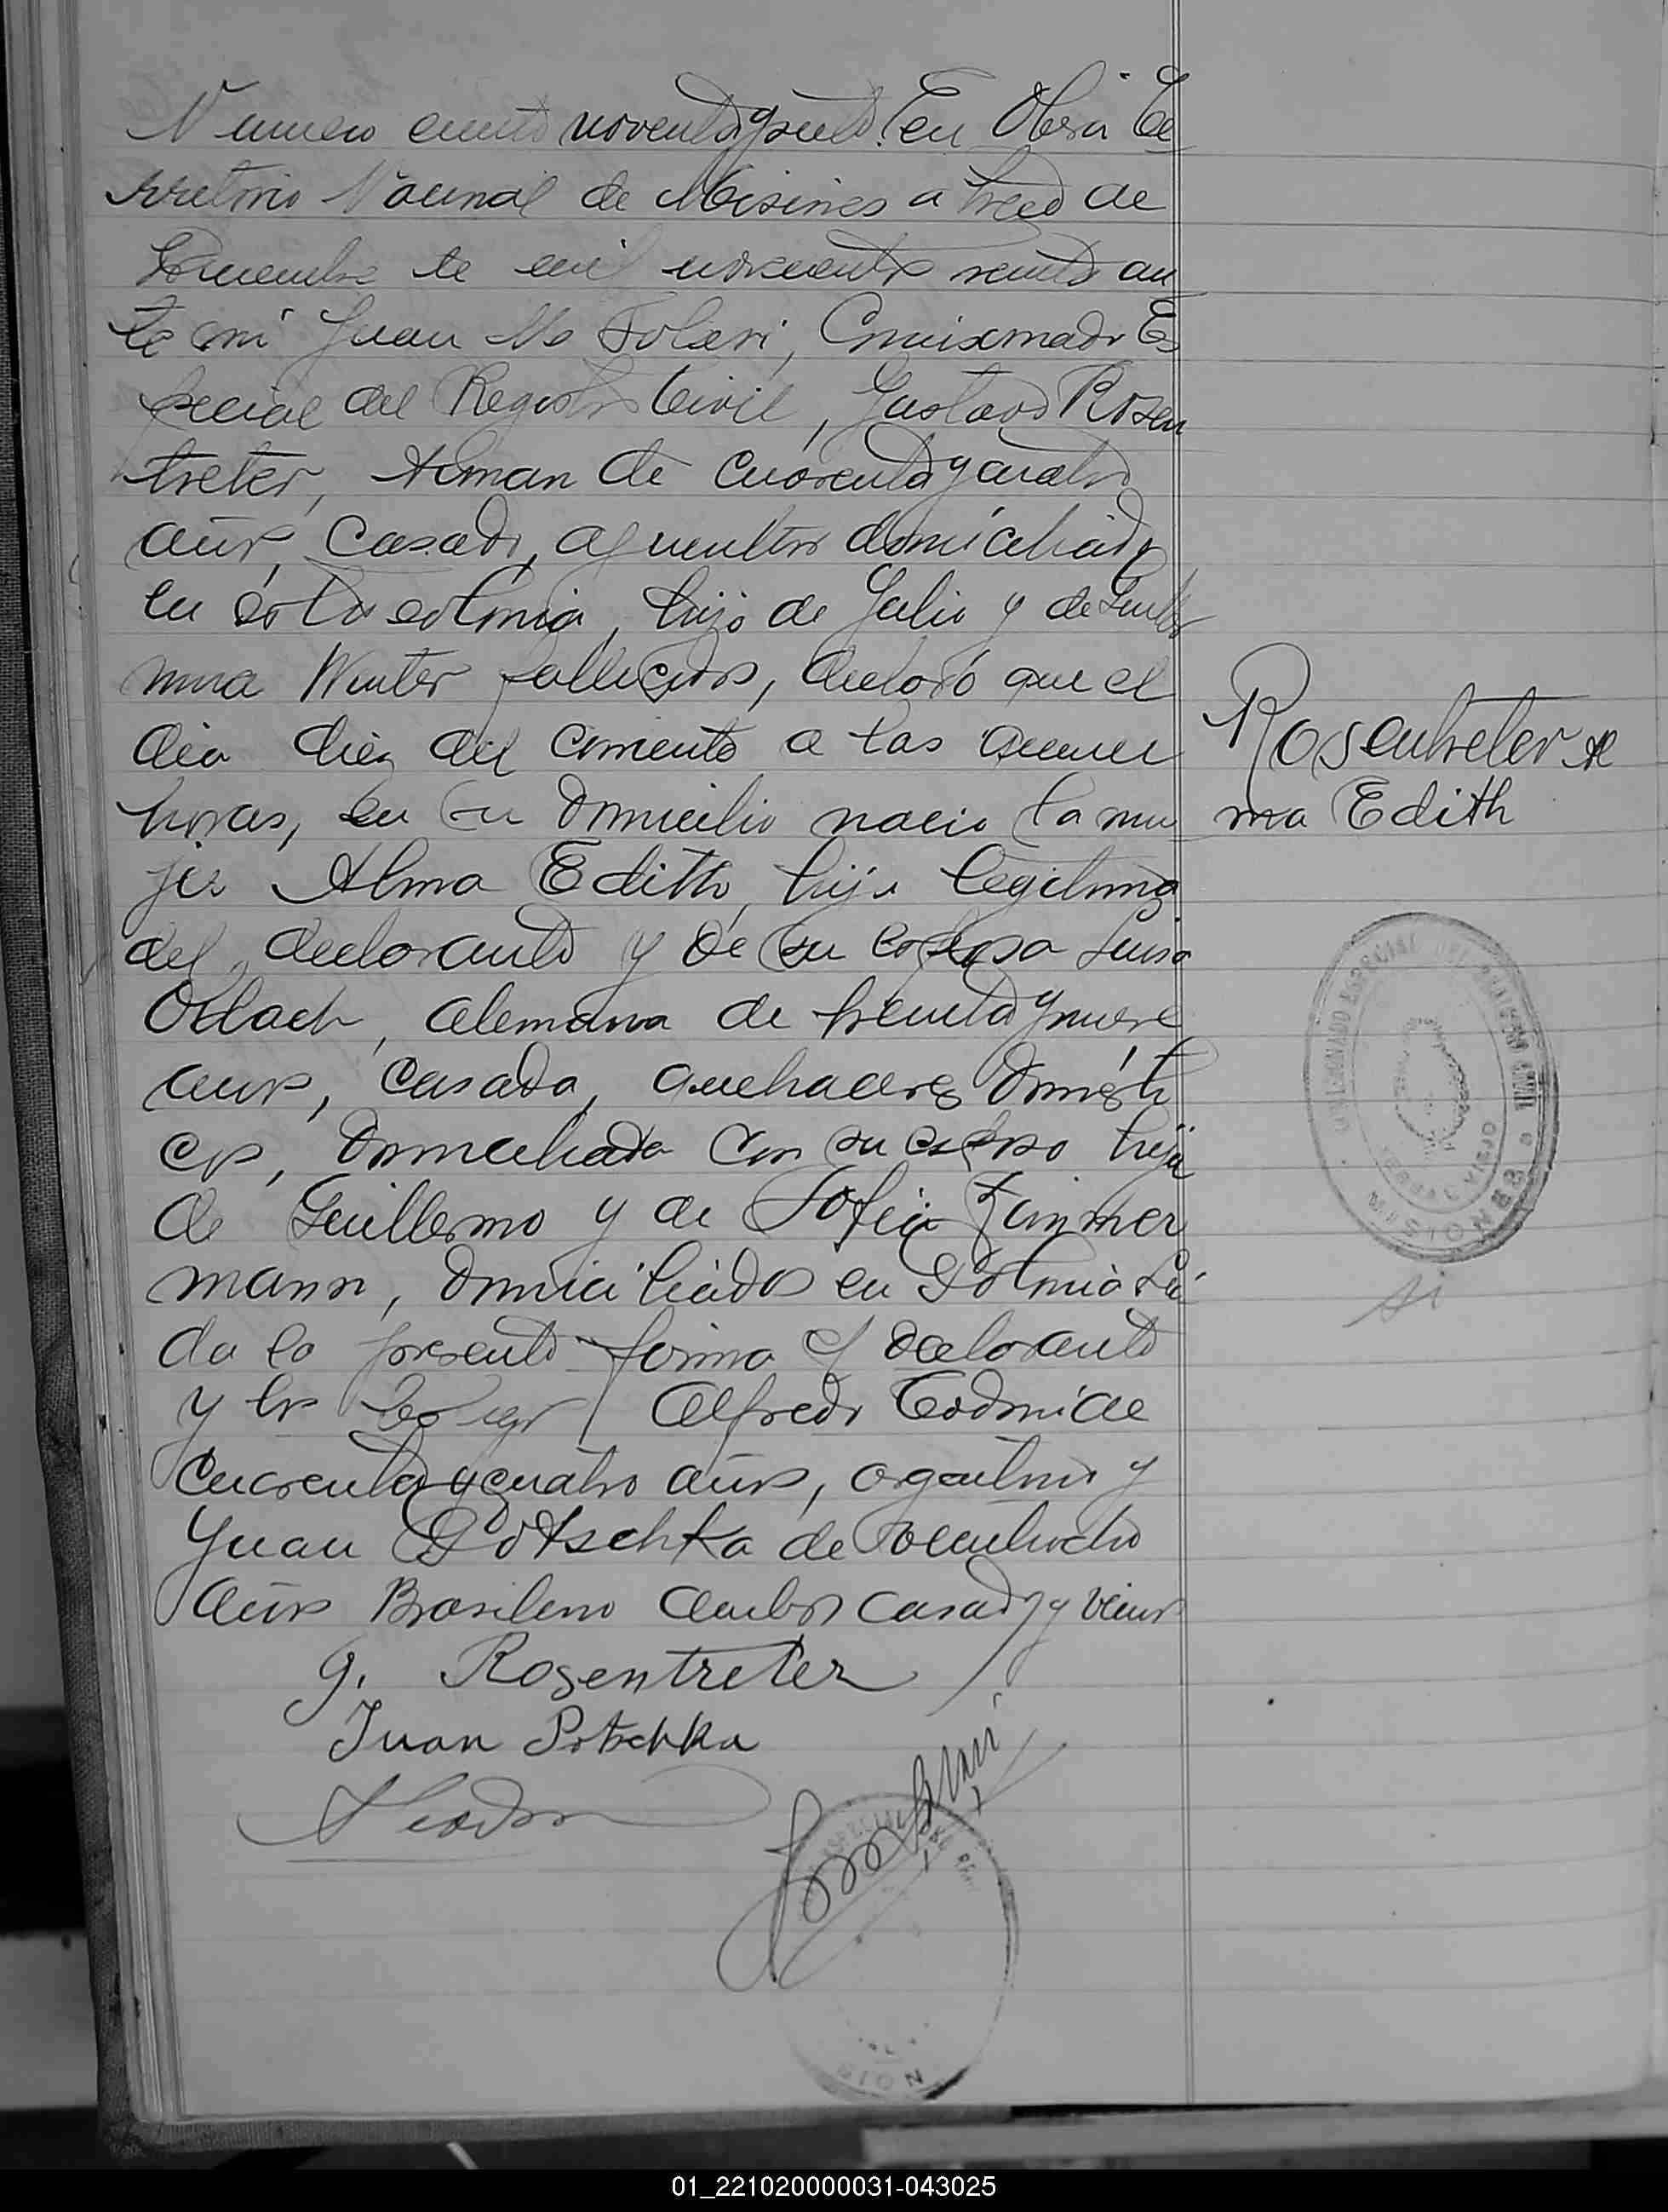 Numero ciento noventa y siete. En Oberá Te
rritorio Nacional de Misiones a trece de
Noviembre de mil novecientos treinta an
te mi Juan Solari, Comisionado Es
pecial del Registro Civil, Gustavo Rosen
treter, Aleman de cuarenta y cuatro
años, casado, agricultor domiciliado
en esta colonia, hijo de Julio y de Guiller
mina Winter fallecidos, declaró que el
dia diez del corriente a las quince
horas, en su domicilio nacio la mu
jer Alma Edith, hija legitima
del declarante y de su esposa Luisa
alemana de treinta y nueve
años, casada, quehaceres domésti
cos, domiciliada con su esposo hija
de Guillermo y de Sofia Zimmer
mann, domiciliados en Polonia Lei
da la presente firma el declarante
y los testigos Alfredo de
cuarenta y cuatro años, argentino y
Juan Potschka de años Brasilero ambos casados y vecinos
G. Rosentreter
Juan Potschka
Rosentreter Al
ma Edith
COMISIONADO ESPECIAL DEL REGISTRO CIVIL
YERBAL VIEJO
MISIONES
si
01_221020000031-043025